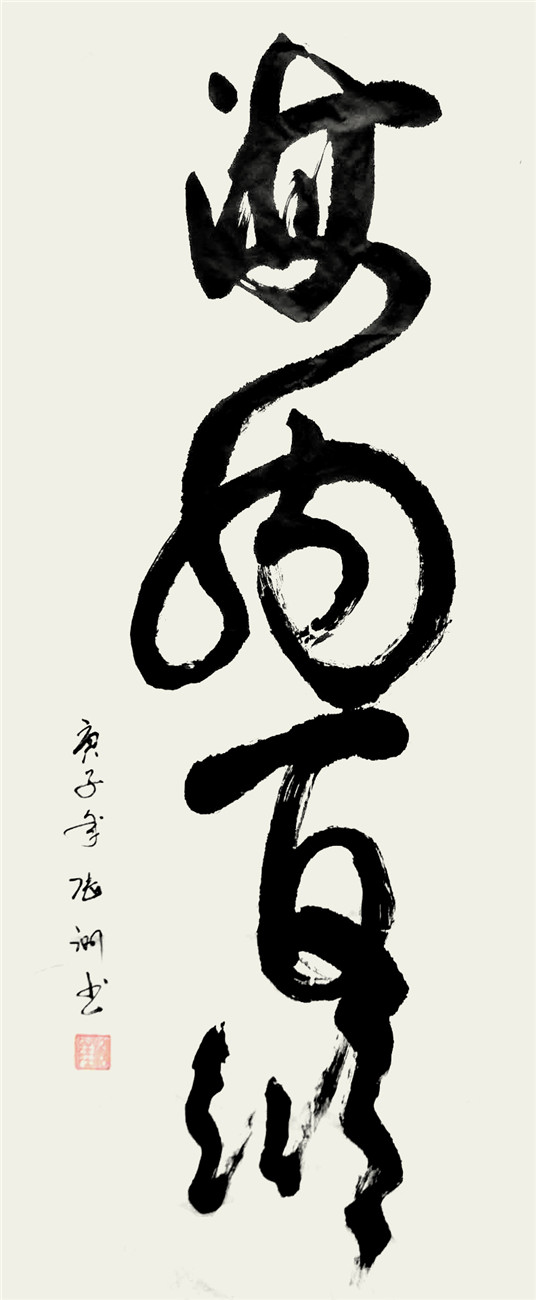 海纳百川
庚子年 张渊书